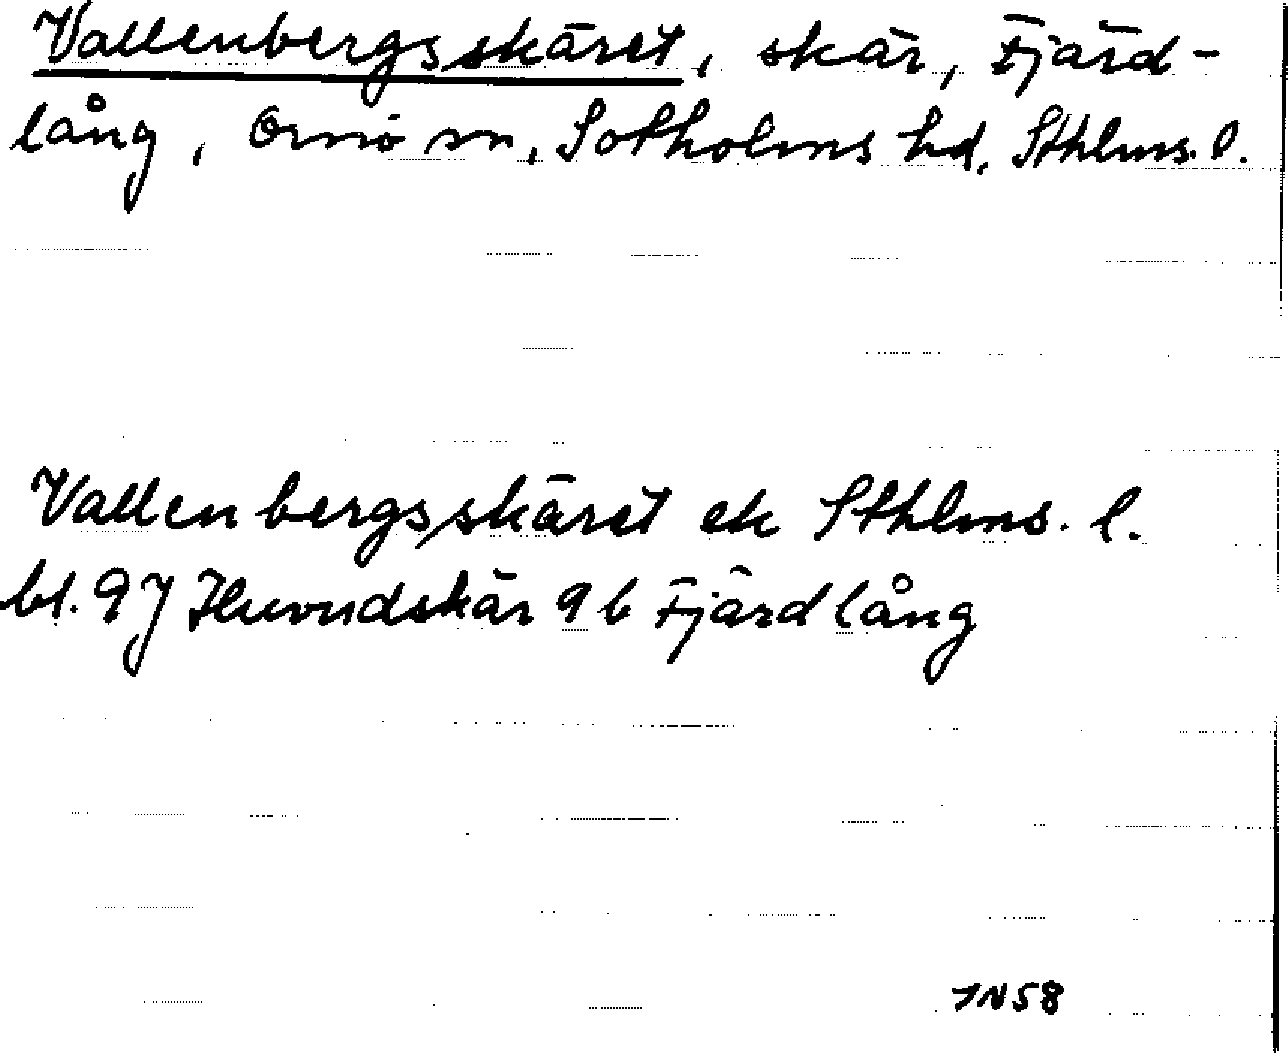 Vallenbergsskäret, skär, Fjärd-
lång, Ornö sn, Sotholms hd, Sthlms. l.
Vallenbergsskäret ek Sthlms. l.
bl. 9J Huvudskär 9b Fjärdlång
JN58